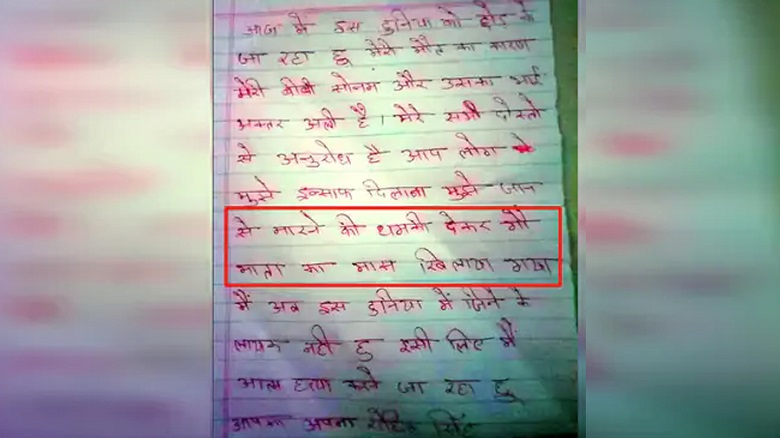 आज मैं इस दुनिया को छोड़ के
जा रहा हू मेरी मौत का कारण
मेरी बीबी सोनम और उसका भाई
अख्तर अली है। मेरे सभी दोस्तो
से अनुरोध है आप लोग
मुझे इन्साफ दिलाना मुझे जान
से मारने की धमकी देकर गौ
माता का मास खिलाया गया
मैं अब इस दुनिया में जिने के
लायक नही हु इसी लिए मैं
आत्म हत्या करने जा रहा हू
आपका अपना रोहित सिंह